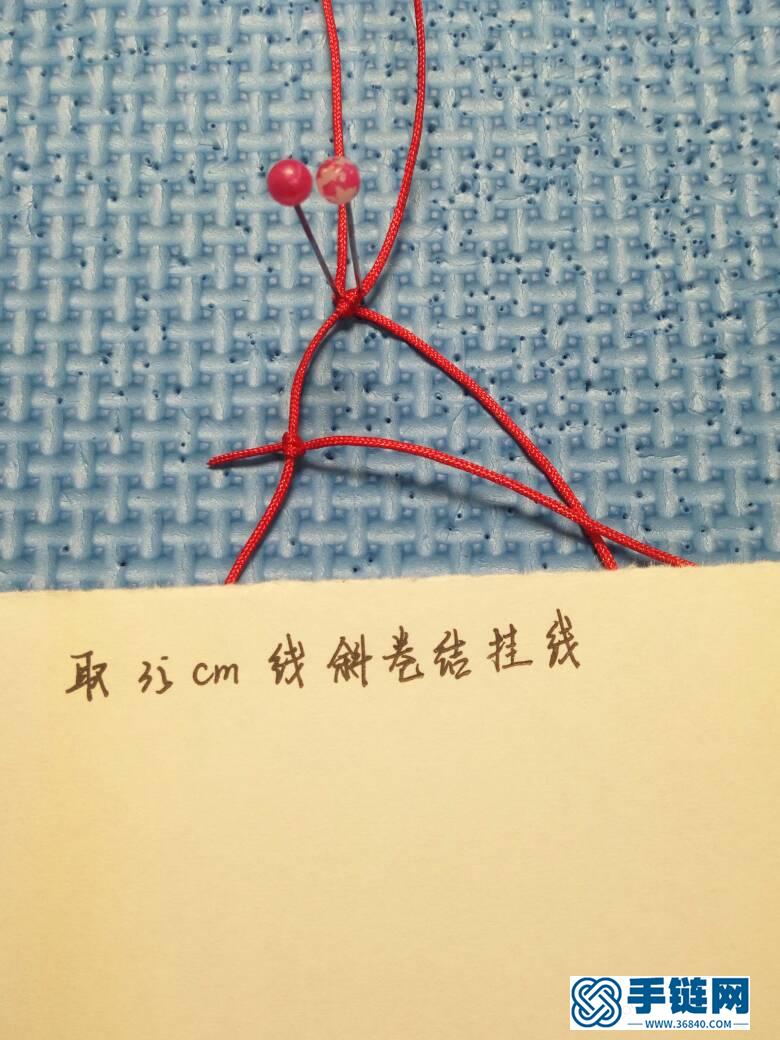 取35cm线斜卷结挂线
手链网
WWW.36840.COM